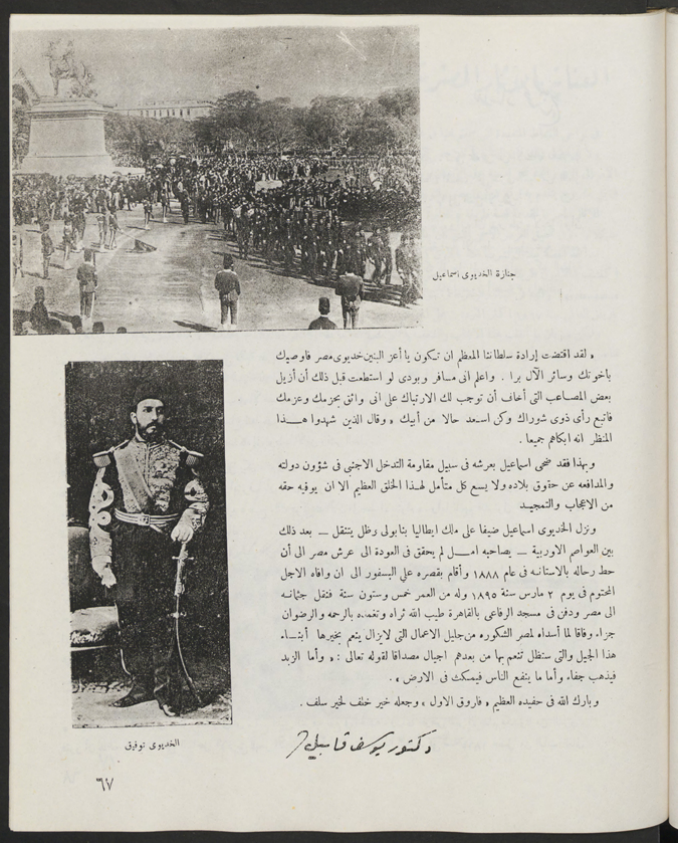 جنازة الخديوى اسماعيل
« لقد اقتضت إرادة سلطاننا المعظم ان تكون يا أعز البنين خديوى مصر فاوصيك
باخوتك وسائر الآل برا . واعلم انى مسافر وبودى لو استطعت قبل ذلك أن أزيل
بعض المصاعب التى أخاف أن توجب لك الارتباك على انى واثق بحزمك وعزمك
فاتبع رأى ذوى شوراك وكن اسعد حالا من أبيك » وقال الذين شهدوا هذا
المنظر انه ابكاهم جميعا .
وبهذا فقد ضحى اسماعيل بعرشه فى سبيل مقاومة التدخل الاجنبى فى شؤون دولته
والمدافعه عن حقوق بلاده ولا يسع كل متأمل لهذا الخلق العظيم الا ان يوفيه حقه
من الاعجاب والتمجيد
ونزل الخديوى اسماعيل ضيفا على ملك ايطاليا بنابولى وظل يتنقل — بعد ذلك
بين العواصم الاوربية — يصاحبه امل لم يحقق فى العودة الى عرش مصر الى أن
حط رحاله بالاستانه فى عام ١٨٨٨ وأقام بقصره على البسفور الى ان وافاه الاجل
المحتوم فى يوم ٢ مارس سنة ١٨٩٥ وله من العمر خمس وستون سنة فنقل جثمانه
الى مصر ودفن فى مسجد الرفاعى بالقاهرة طيب الله ثراه وتغمده بالرحمه والرضوان
جزاء وفاقا لما أسداه لمصر الشكوره من جليل الاعمال التى لايزال ينعم بخيرها أبناء
هذا الجيل والتى ستظل تنعم بها من بعدهم اجيال مصداقا لقوله تعالى : « وأما الزبد
فيذهب جفاء وأما ما ينفع الناس فيمكث فى الارض » .
وبارك الله فى حفيده العظيم « فاروق الاول » وجعله خير خلف لخير سلف .
دكتور يوسف
الخديوى توفيق
٦٧